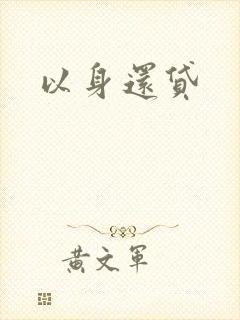 以身還貸
黄文軍